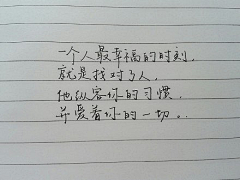 一个人最幸福的时刻，
就是找对了人，
他纵容你的习惯，
并爱着你的一切。